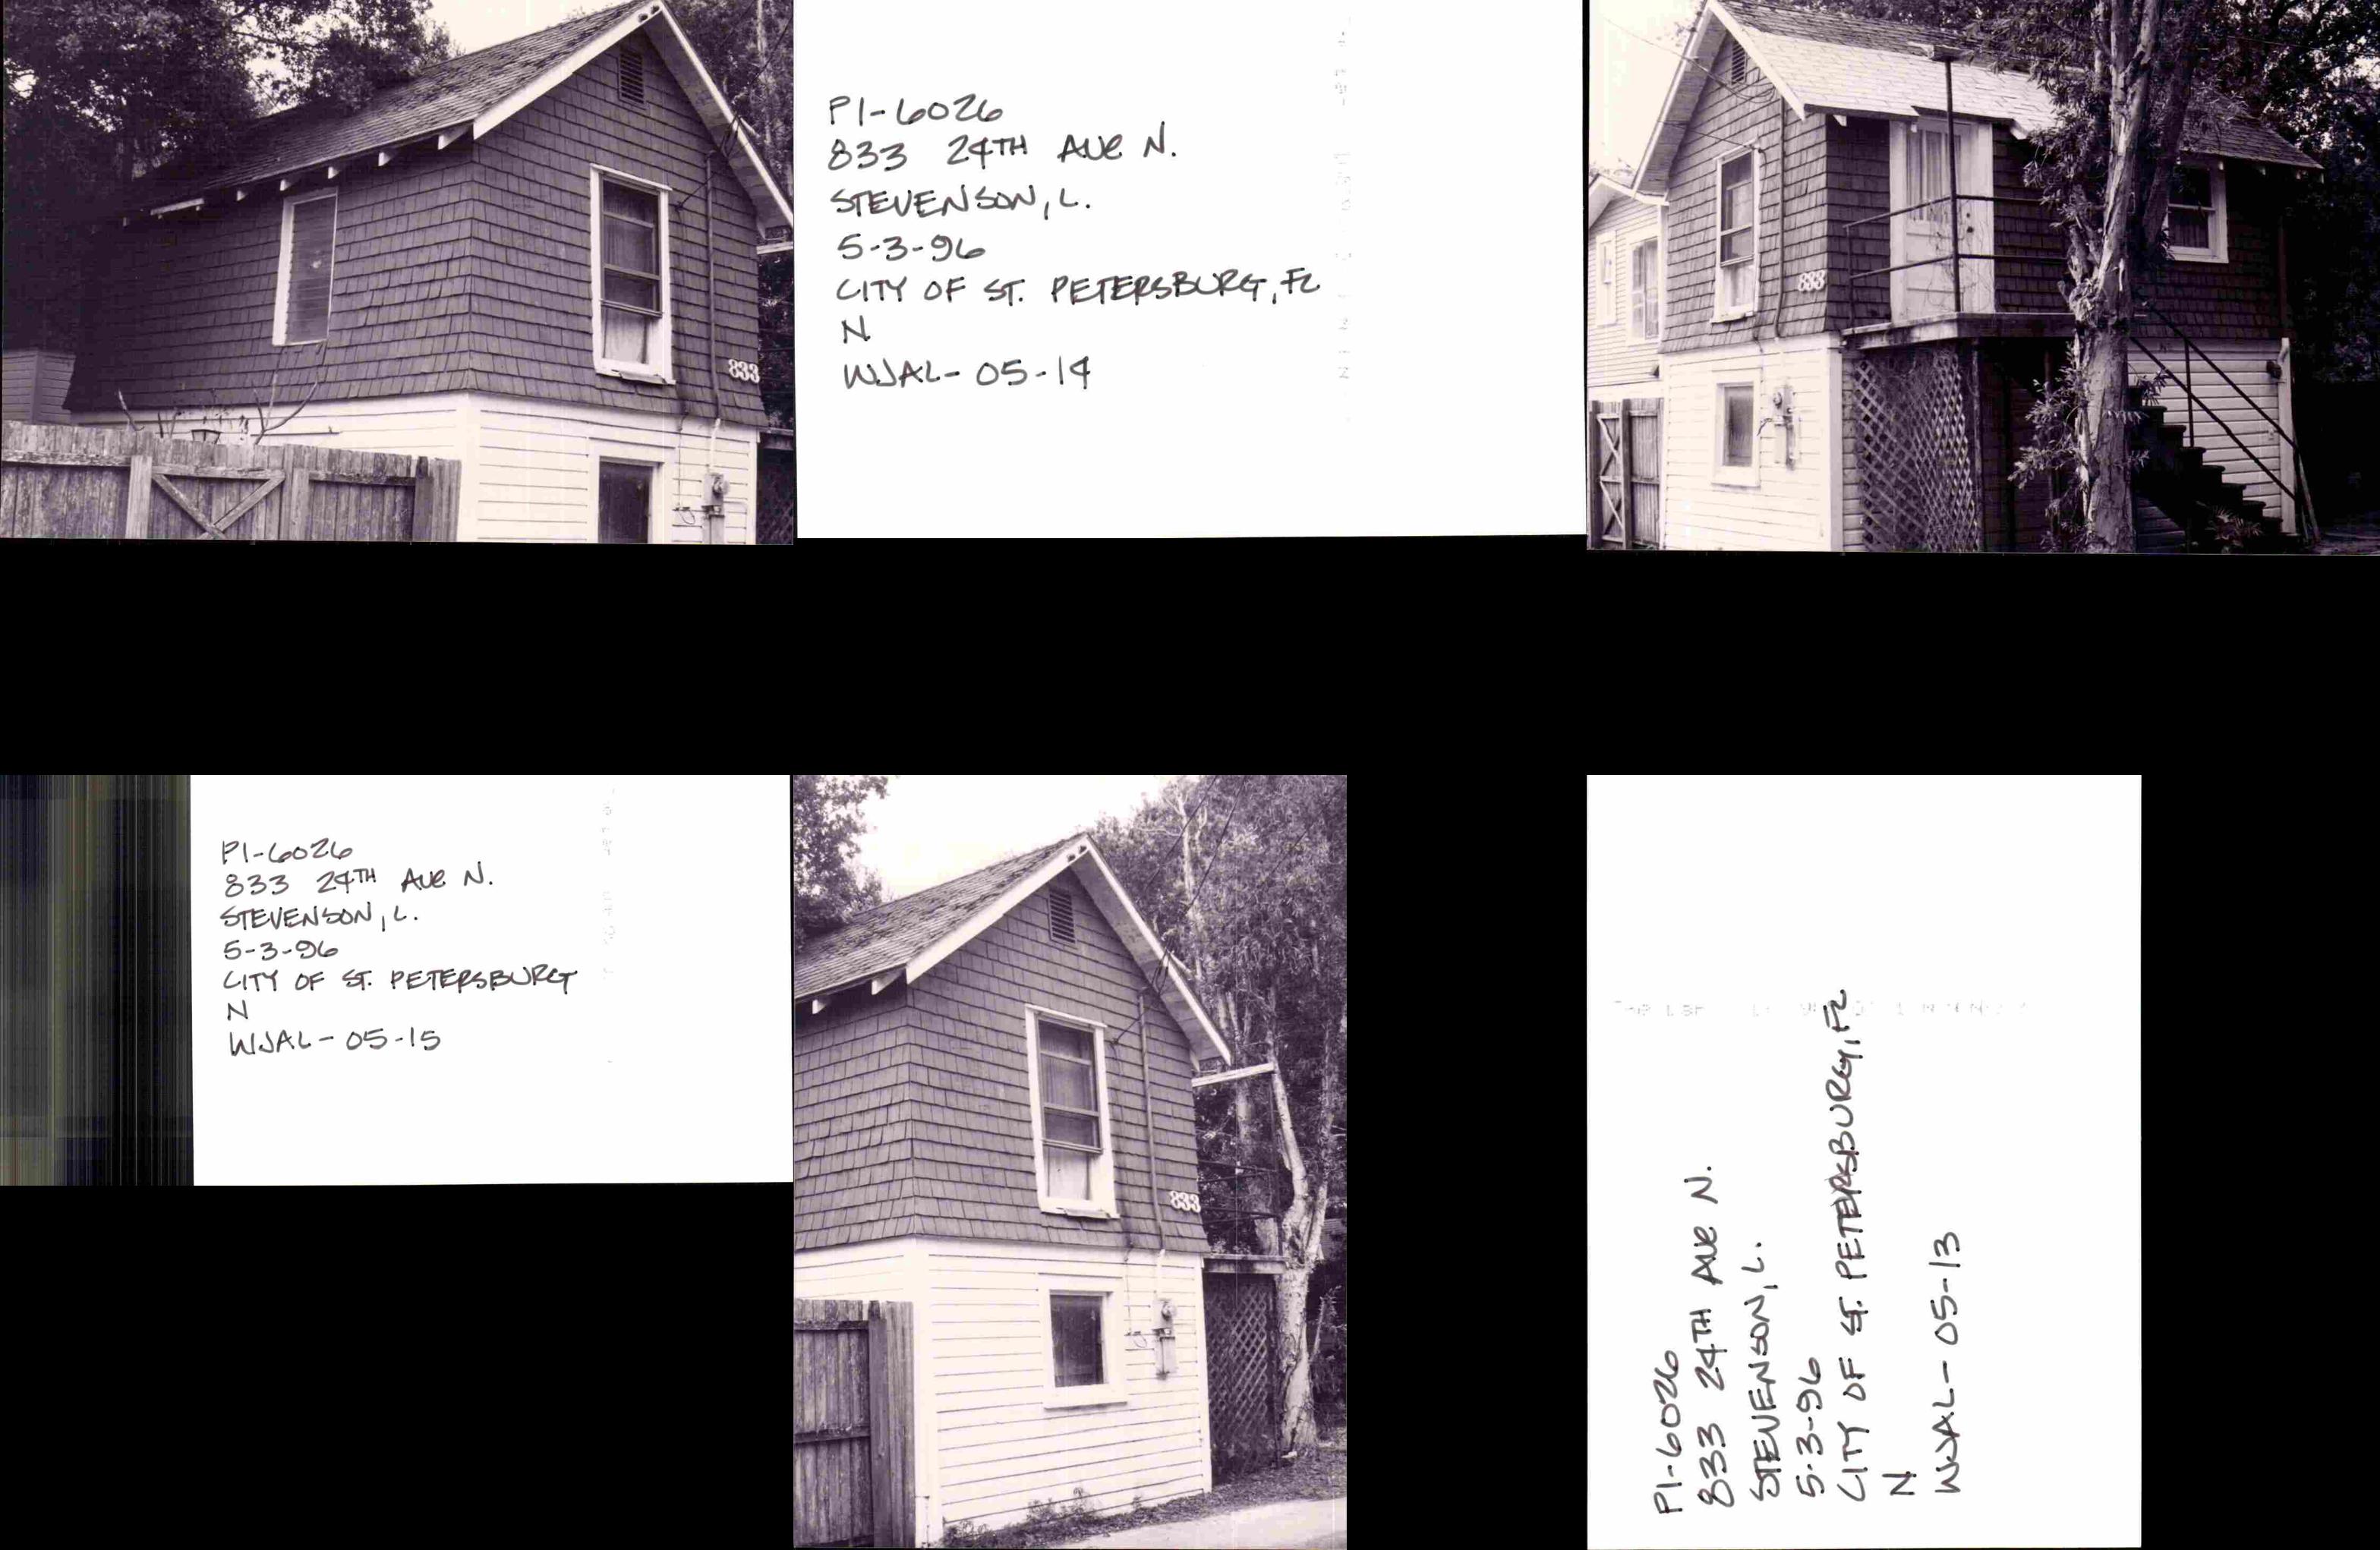 833
PI-6026
833 24TH AVE N.
STEVENSON, L.
5-3-96
CITY OF ST. PETERSBURG, FL
N
WJAL-05-14
833
PI-6026
833 24TH AVE N.
STEVENSON, L.
5-3-96
CITY OF ST. PETERSBURG
N
WJAL-05-15
833
PI-6026
833 24TH AVE N.
STEVENSON, L.
5-3-96
CITY OF ST. PETERSBURG, FL
N
WJAL-05-13